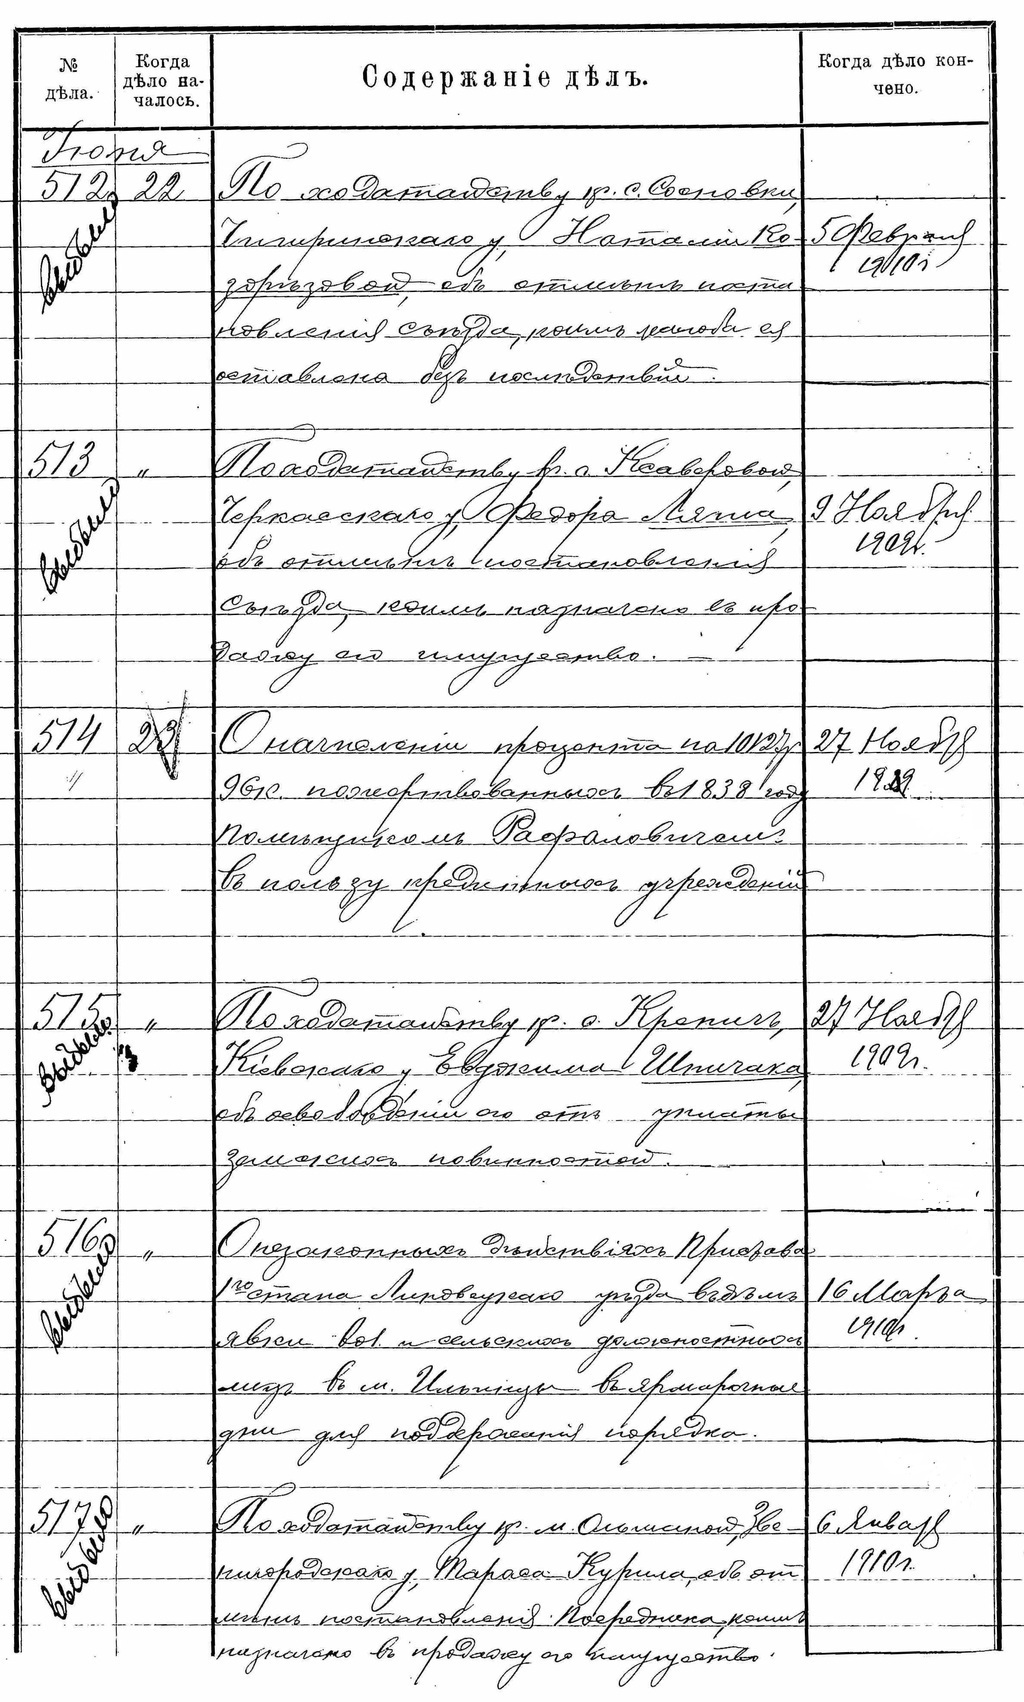 № дѣла.
Когда дѣло началось.
Содержаніе дѣлъ.
Когда дѣло кончено.
Іюня
512 22 По ходатайству кр. с. Сосновки,
Чигиринскаго у, Наталіи Ко- 5 Февраля
зорѣзовой, объ отмѣнѣ поста 1910 г
новленія съѣзда, коимъ жалоба ея
оставлена безъ послѣдствій.
выбыло
513 " По ходатайству кр. с. Ксаверовой,
Черкасскаго у, Федора Ляша, 9 Ноября
объ отмѣнѣ постановленія 1909 г.
съѣзда, коимъ назначено въ про
дажу его имущество. —
выбыло
514 22 О начисленіи процента на 10127 р 27 Ноября
" 96 к. пожертвованныхъ въ 1838 году 1909
помѣщикомъ Рафаловичемъ
въ пользу кредитныхъ учрежденій
.
515 " По ходатайству кр. с. Кренич, 27 Ноября
Кіевскаго у Евдокима Шпичака, 1909 г.
объ освобожденіи его отъ уплаты
земскихъ повинностей.
выбыло
516 " О незаконныхъ дѣйствіяхъ Пристава
1го стана Липовецкаго уѣзда 16 Марта
явки вол. и сельскихъ должностныхъ 1910 г.
лицъ въ м. Ильинцы въ ярмарочные
дни для поддержанія порядка.
выбыло
517 " По ходатайству кр. м. Ольшаной, Зве- 6 Января
нигородскаго у, Тараса Курила, объ от 1910 г.
мѣнѣ постановленія Посредника, коимъ
назначено въ продажу его имущество.
выбыло